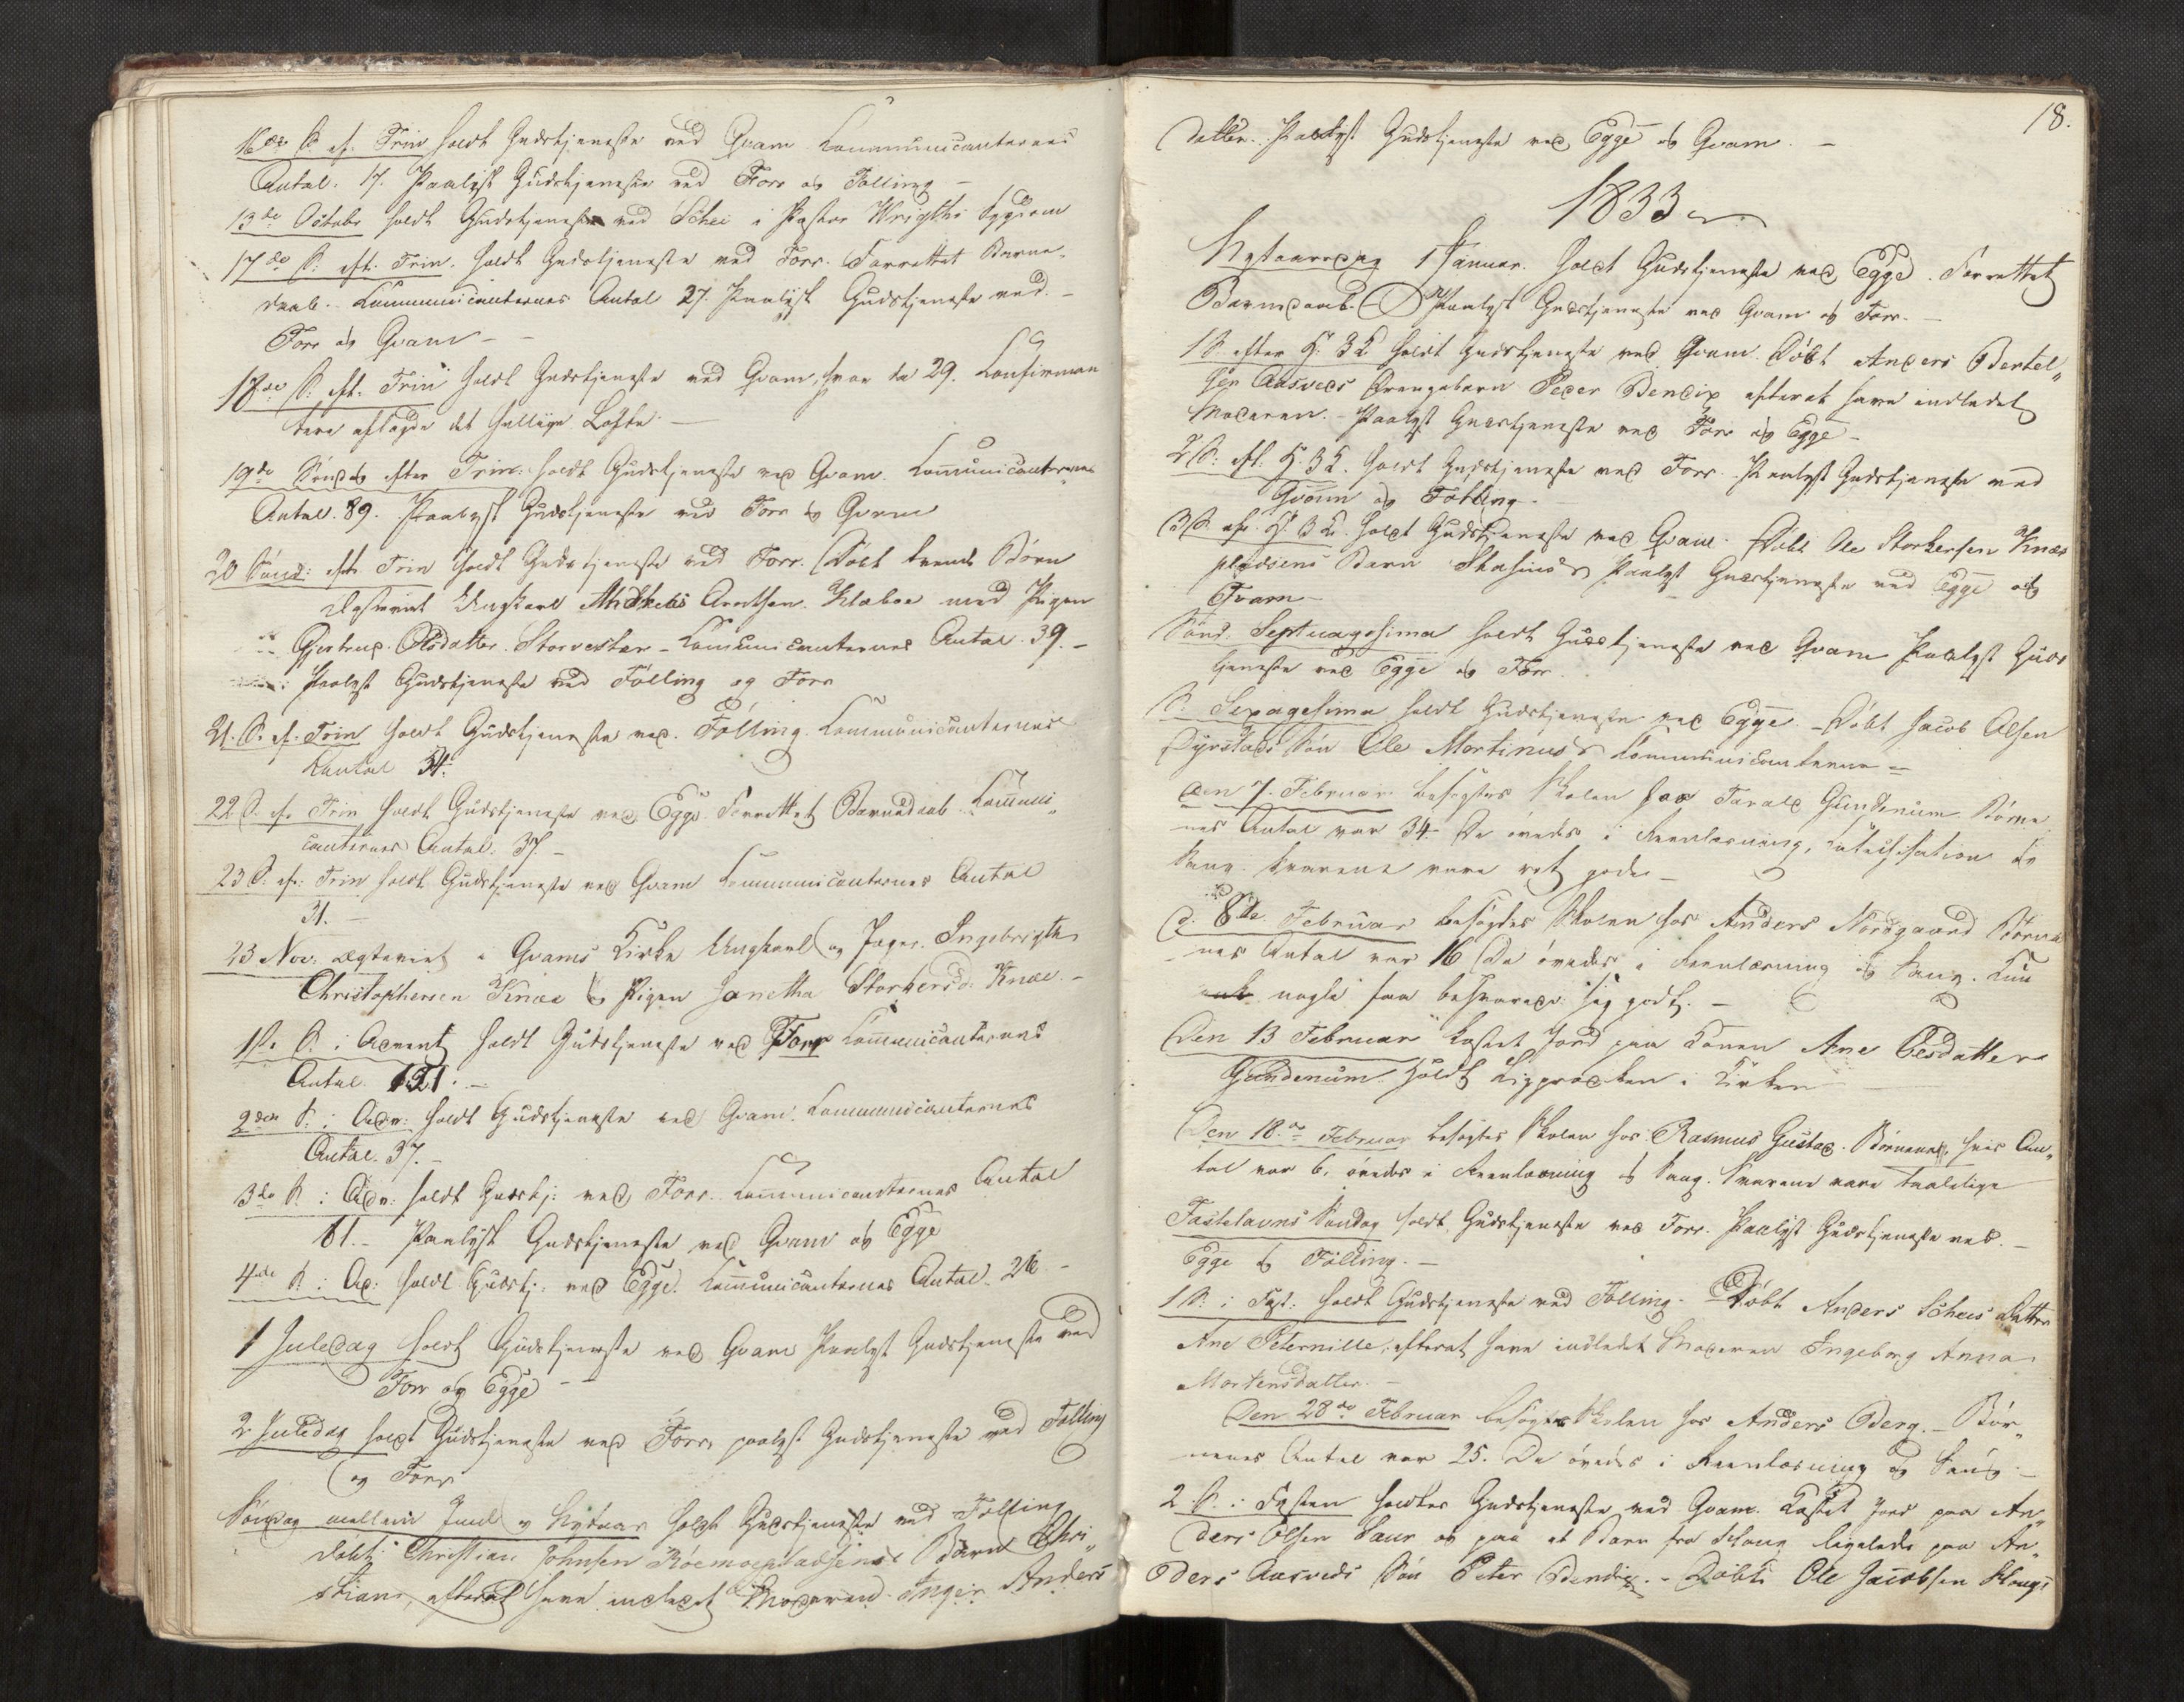 16de S. ef. Trin holdt Gudstjeneste ved Qvam Communicanternes
Antal. 17. Paalyst Gudstjeneste ved Forr og Følling –
13de Octobr holdt Gudstjeneste ved Schei i Pastor Wrigths Sygdom
17de S: eft. Trin. holdt Gudstjeneste ved Forr. Forrettet Barne„
daab. Communicanternes Antal 27. Paalyst Gudstjeneste ved –
Forr og Qvam – –
18de S: eft. Trin holdt Gudstjeneste ved Qvam, hvor de 29. Confirman
tere aflagde det hellige Løfte –
19de Søndag efter Trin: holdt Gudstjeneste ved Qvam. Communicanternes
Antal. 89. Paalyst Gudstjeneste ved Forr og Qvam
20 Sønd: eft. Trin holdt Gudstjeneste ved Forr. Døbt tvende Børn
Ægteviet Ungkarl Arntsen. Klæboe med Pigen
Gjertrud. Olsdatter. Storvestar – Communicanternes Antal. 39. –
Paalyst Gudstjeneste ved Følling og Forr
21. S. ef. Trin holdt Gudstjeneste ved. Følling. Communicanternes
Antal 34.
22 S. ef. Trin holdt Gudstjeneste ved Egge Forrettet Barnedaab. Communi„
canternes Antal. 37. –
23 S. ef: Trin holdt Gudstjeneste ved Qvam Communicanternes Antal
31. –
23 Nov: ægteviet i Qvams Kirke Ungkarl og Ingebrigth
Christophersen Knæe og Pigen Janetha Storkersd. Knæe. –
1ste S. i Advent holdt Gudstjeneste ved Forr Communicanternes
Antal. 121. –
2den S. i Adv: holdt Gudstjeneste ved Qvam. Communicanternes
Antal. 37. –
3die S: i Adv: holdt Gudstj: ved Forr. Communicanternes Antal
61. – Paalyst Gudstjeneste ved Qvam og Egge
4de S: i Ad: holdt Gudstj: ved Egge. Communicanternes Antal. 26 –
1 Juledag holdt Gudstjeneste ved Qvam Paalyst Gudstjeneste ved
Forr og Egge – –
2 Juledag holdt Gudstjeneste ved Forr, paalyst Gudstjeneste ved Følling
og Forr
Søndag mellem Juul og Nytaar holdt Gudstjeneste ved Følling
døbt: Christian Johnsen Barn Chri„
stian, efterat have indledet Moderen. Inger Anders
18.
datter. Paalyst Gudstjeneste ved Egge og Qvam. –
1833
Nytaarsdag 1 Januar. holdt Gudstjeneste ved Egge. Forrettet
Barnedaab. Paalyst Gudstjeneste ved Qvam og Forr. –
1 S. efter H. 3 K holdt Gudstjeneste ved Qvam. Døbt Anders Bertel„
sen Aasveds Drengebarn Peder Bendix efterat have indledet
Moderen. – Paalyst Gudstjeneste ved Forr og Egge –
2 S: eft. H. 3 K. holdt Gudstjeneste ved Forr. Paalyst Gudstjeneste ved
Qvam og Følling –
3 S. eft. H. 3 K. holdt Gudstjeneste ved Qvam. Døbt Ole Storkersen Knæe
pladsens Barn Paalyst Gudstjeneste ved Egge og
Qvam –
Sønd. Septuagesima holdt Gudstjeneste ved Qvam Paalyst Guds
tjeneste ved Egge og Forr.
S: Sexagesima holdt Gudstjeneste ved Egge. – Døbt Jacob Olsen
Dyrstads Søn Ole Martinus Communicanterne –
Den 7. Februar. besøgtes Skolen hos Tarald Gundenum Børne
nes Antal var 34 – De øvedes i Reenlæsning, Catechisation og
Sang. Svarene vare ret gode –
d. 8de Februar besøgtes Skolen hos Anders Nordgaard Børne
nes Antal var 16 De øvedes i Reenlæsning og Sang. Kun
nogle faa besvarede sig godt. –
Den 13 Februar kastet Jord paa Konen Ane Olesdatter
Gundenum. Holdt Ligprædken i Kirken
Den 18de Februar besøgtes Skolen hos Rasmus Gustad. Børnene, hvis An„
tal var 6, øvedes i Reenlæsning og Sang. Svarene vare taalelige
Fastelavns Søndag holdt Gudstjeneste ved Forr. Paalyst Gudstjeneste ved. –
Egge og Følling. –
1 S. i Fast: holdt Gudstjeneste ved Følling. – Døbt Anders Scheis Datter
Ane Peternille, efterat have indledet Moderen Ingeborg Anna
Mortensdatter. –
Den 28de Februar besøgtes Skolen hos Anders Berg. – Bør„
nenes Antal var 25. De øvedes i Reenlæsning og Sang –
2. S. i Fasten holdtes Gudstjeneste ved Qvam. Kastet Jord paa An„
ders Olsen Saur og paa et Barn fra Houg ligeledes paa An„
ders Aasveds Søn Peter Bendix. – Døbt: Ole Jacobsen Hougs